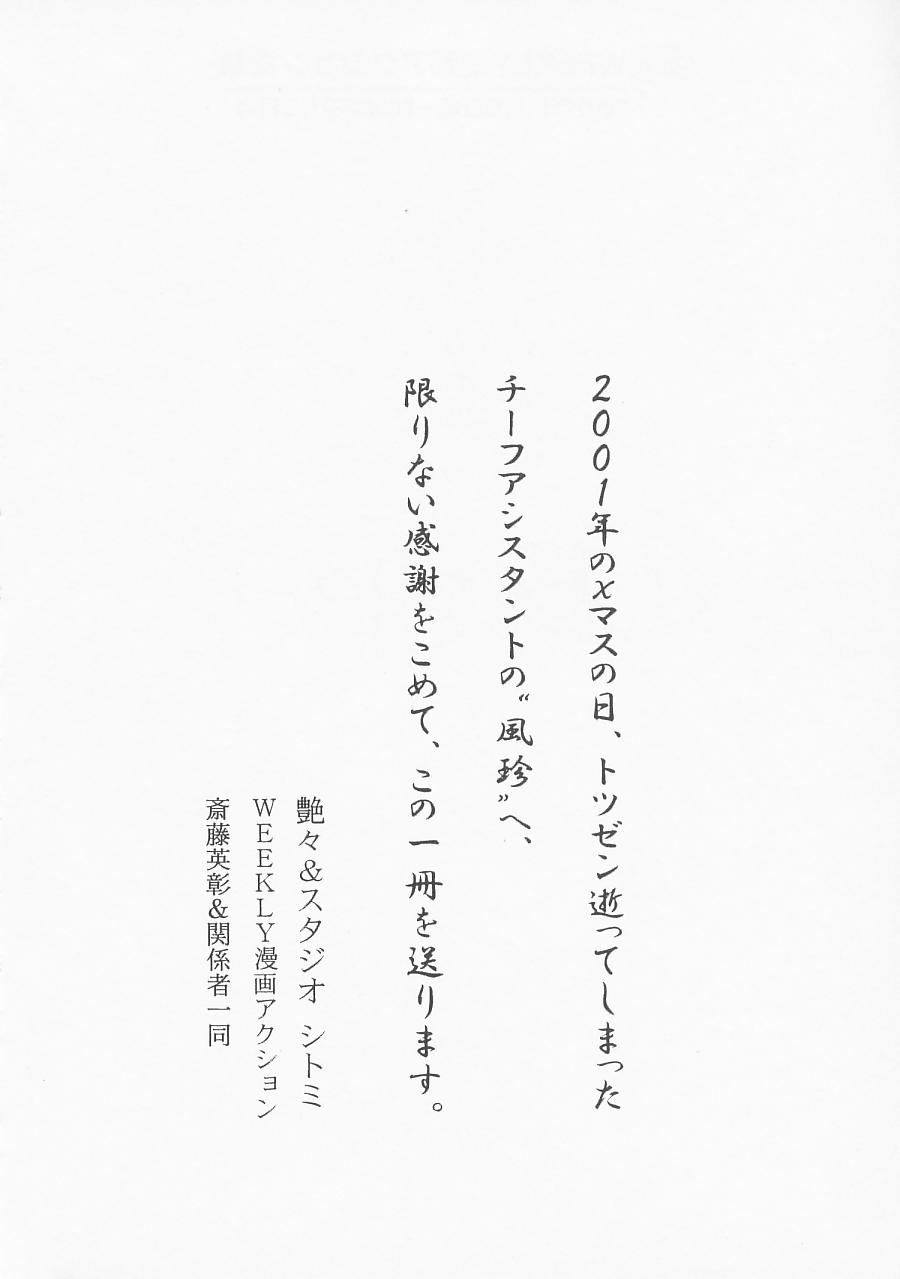 2001年のXマスの日、トツゼン逝ってしまった
チーフアシスタントの〝風珍〟へ、
限りない感謝をこめて、この一冊を送ります。
艶々&スタジオ シトミ
WEEKLY漫画アクション
斎藤英彰&関係者一同